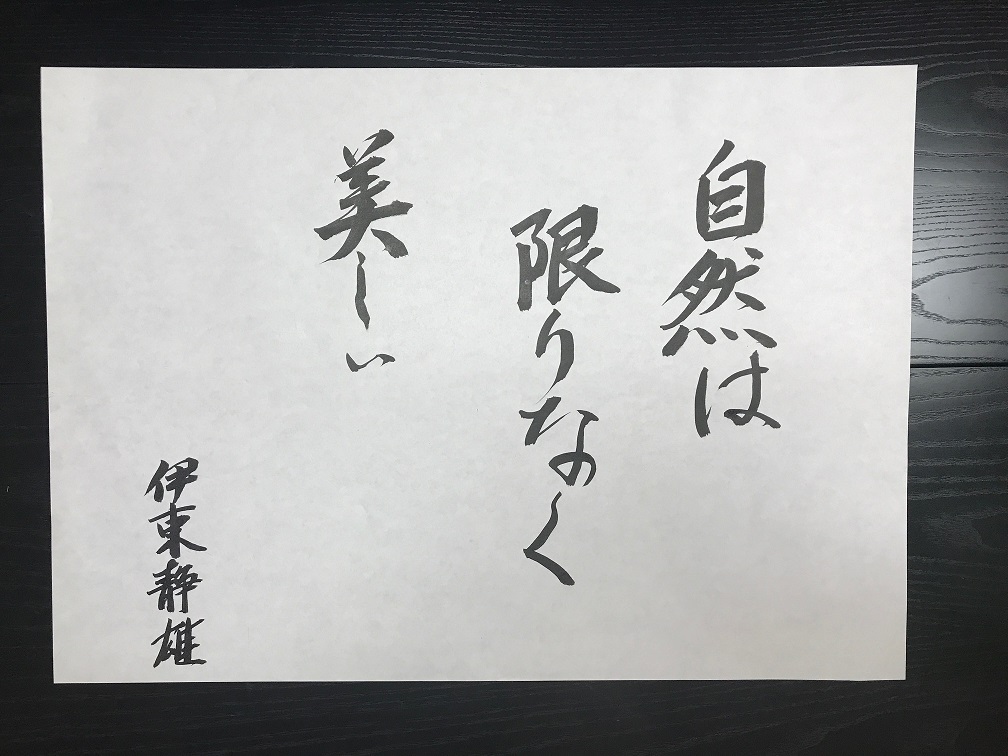 自然は
限りなく
美しい
伊東静雄